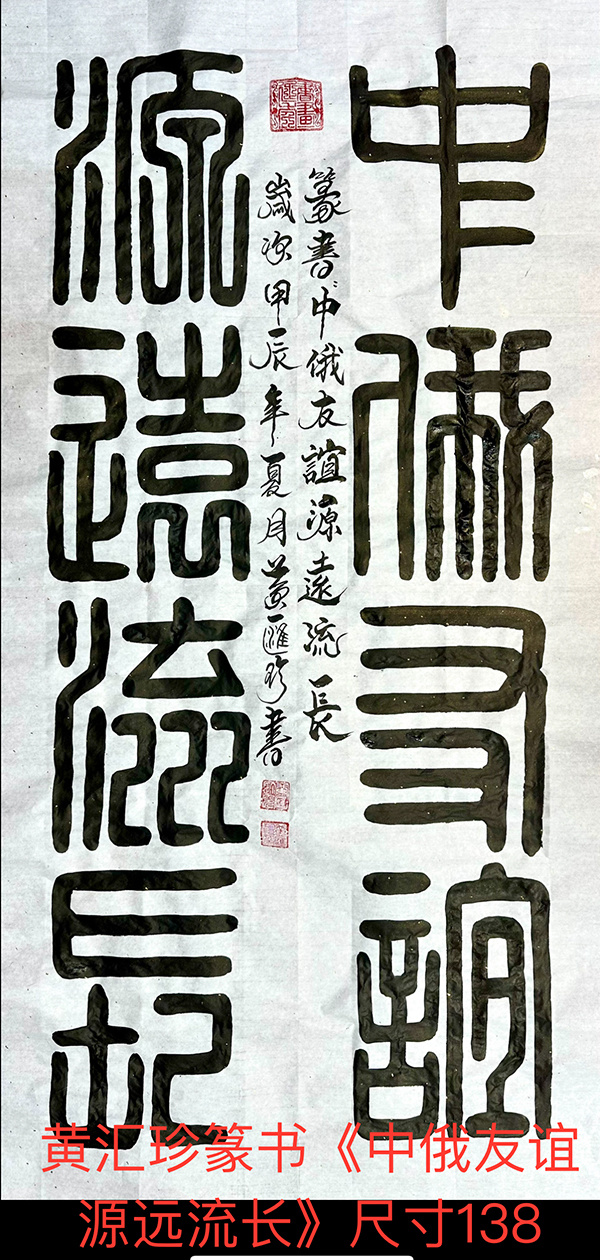 中俄友誼
源遠流長
篆書中俄友誼源遠流長
歲次甲辰年夏月黃匯珍書
黄汇珍篆书《中俄友谊
源远流长》尺寸138